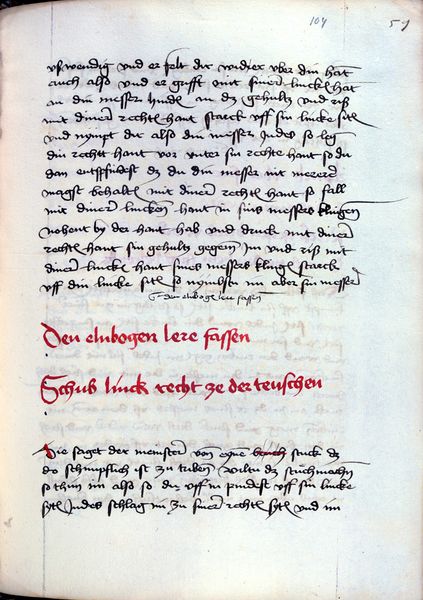 104 57
vßwendig vnd er felt dir wider vber din hāt
auch also vnd er grifft mit siner linckē hāt
an din messer hindē an dz gehultz vnd riß
mit diner rechtē hant starck vff sin lincke sitē
vnd nympt dir also din messer Indes so leg
din rechtt hant vor vnter sin rechte hant so du
dan entpfindest dz du din messer nit merer
magst behaltē mit diner rechtē hant so fall
mit diner linckenn hant in sins messers klingen
nohent by der hant hab vnd druck mit diner
rechtē hant sin gehultz gegem Im vnd riß mit
diner linckē hant sines messers klingē starck
vff din lincke sitē so nymbstu im aber sin messer
den elnbogē lere fassen
Den elnbogen lere fassen
Schub linck recht ze der teuschen
Hie saget der meinster von eyne stuck dz
do schimpflich ist zu triben wiltu dz stuck machen
so thin im also so dir vff in pindest vff sin lincke
sytē Indes schlag im zu siner rechtē sytē vnd im